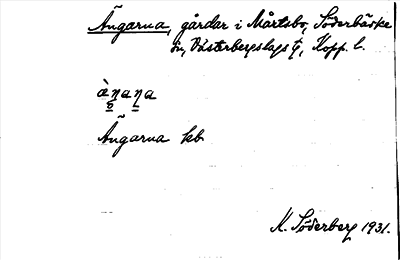 Ängarna, gårdar i Mårtsbo, Söderbärke
sn, Västerbergslags
Kopp. l.
Ängarna kb
K. Söderberg 1931.